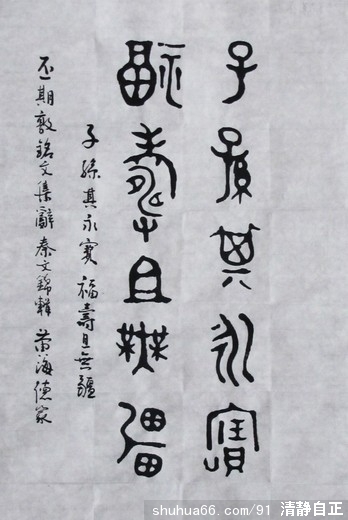 子孫其永寶
福壽且無疆
子孫其永寶福壽且無疆
不期敦銘文集辭秦文錦輯黄海德家
shuhua66.com/91 清静自正